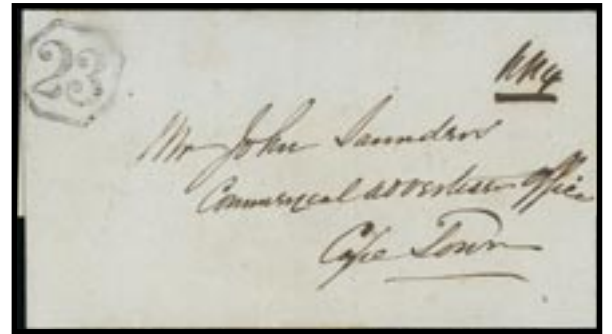 23
Mr John Saunders
Commercial Advertiser office
Cape Town